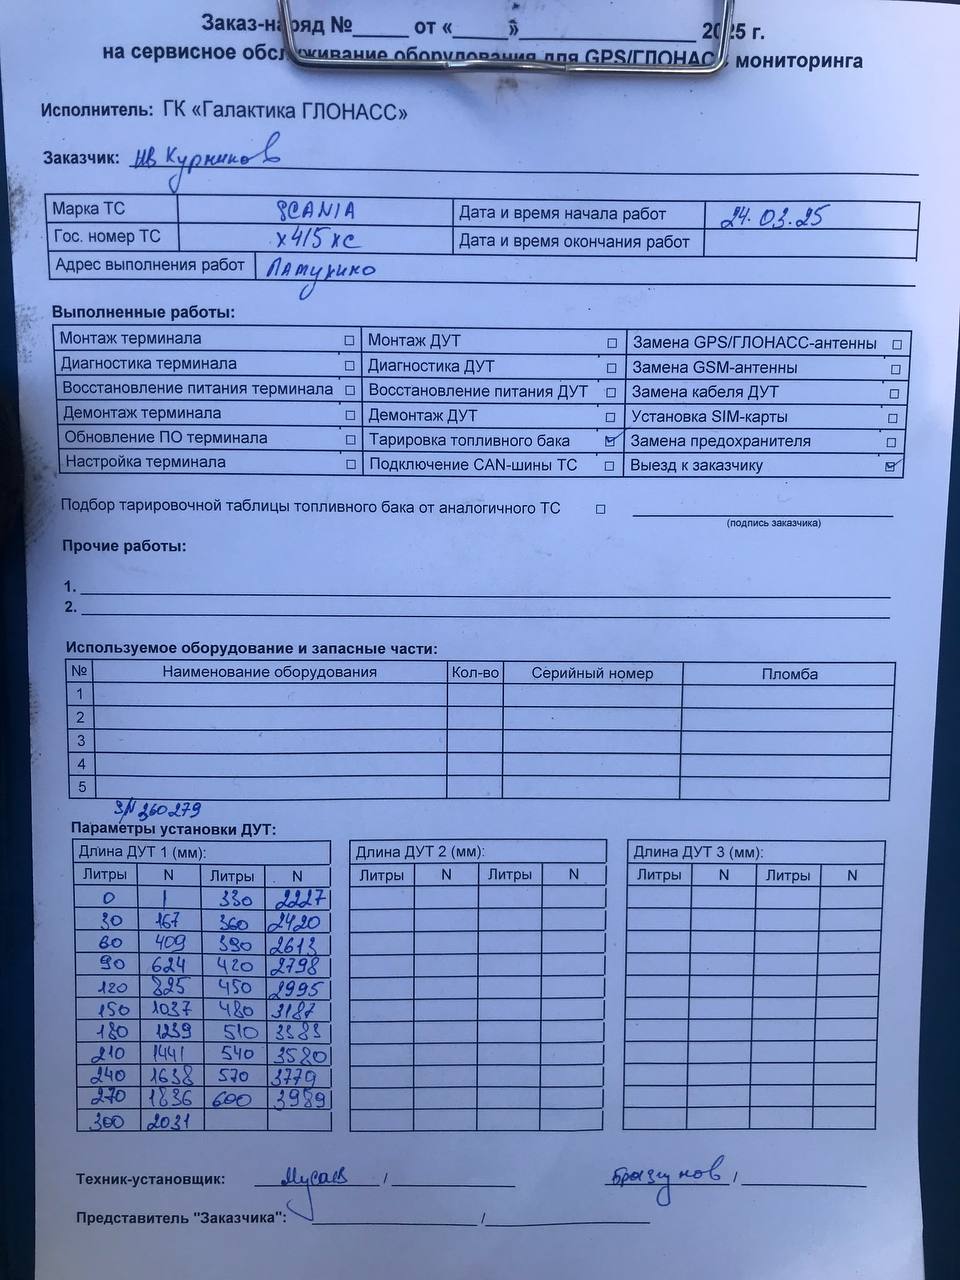 Заказ-наряд №_____ от «_____»________________ 2025 г.
на сервисное обслуживание оборудования для GPS/ГЛОНАСС мониторинга
Исполнитель: ГК «Галактика ГЛОНАСС»
Заказчик: ИВ Курников
Марка ТС SCANIA Дата и время начала работ 24.03.25
Гос. номер ТС х415кс Дата и время окончания работ
Адрес выполнения работ
Выполненные работы:
Монтаж терминала ☐ Монтаж ДУТ ☐ Замена GPS/ГЛОНАСС-антенны ☐
Диагностика терминала ☐ Диагностика ДУТ ☐ Замена GSM-антенны ☐
Восстановление питания терминала ☐ Восстановление питания ДУТ ☐ Замена кабеля ДУТ ☐
Демонтаж терминала ☐ Демонтаж ДУТ ☐ Установка SIM-карты ☐
Обновление ПО терминала ☐ Тарировка топливного бака ☑ Замена предохранителя ☐
Настройка терминала ☐ Подключение CAN-шины ТС ☐ Выезд к заказчику ☑
Подбор тарировочной таблицы топливного бака от аналогичного ТС ☐
(подпись заказчика)
Прочие работы:
1.
2.
Используемое оборудование и запасные части:
№ Наименование оборудования Кол-во Серийный номер Пломба
1
2
3
4
5
З/N 260279
Параметры установки ДУТ:
Длина ДУТ 1 (мм): Длина ДУТ 2 (мм): Длина ДУТ 3 (мм):
Литры N Литры N Литры N Литры N Литры N Литры N
0 1 330 2227
30 167 360 2420
60 409 390 2613
90 624 420 2798
120 825 450 2995
150 1037 480 3187
180 1239 510 3383
210 1441 540 3580
240 1638 570 3779
270 1836 600 3989
300 2031
Техник-установщик: Мусаев / Брызгунов /
Представитель "Заказчика": /